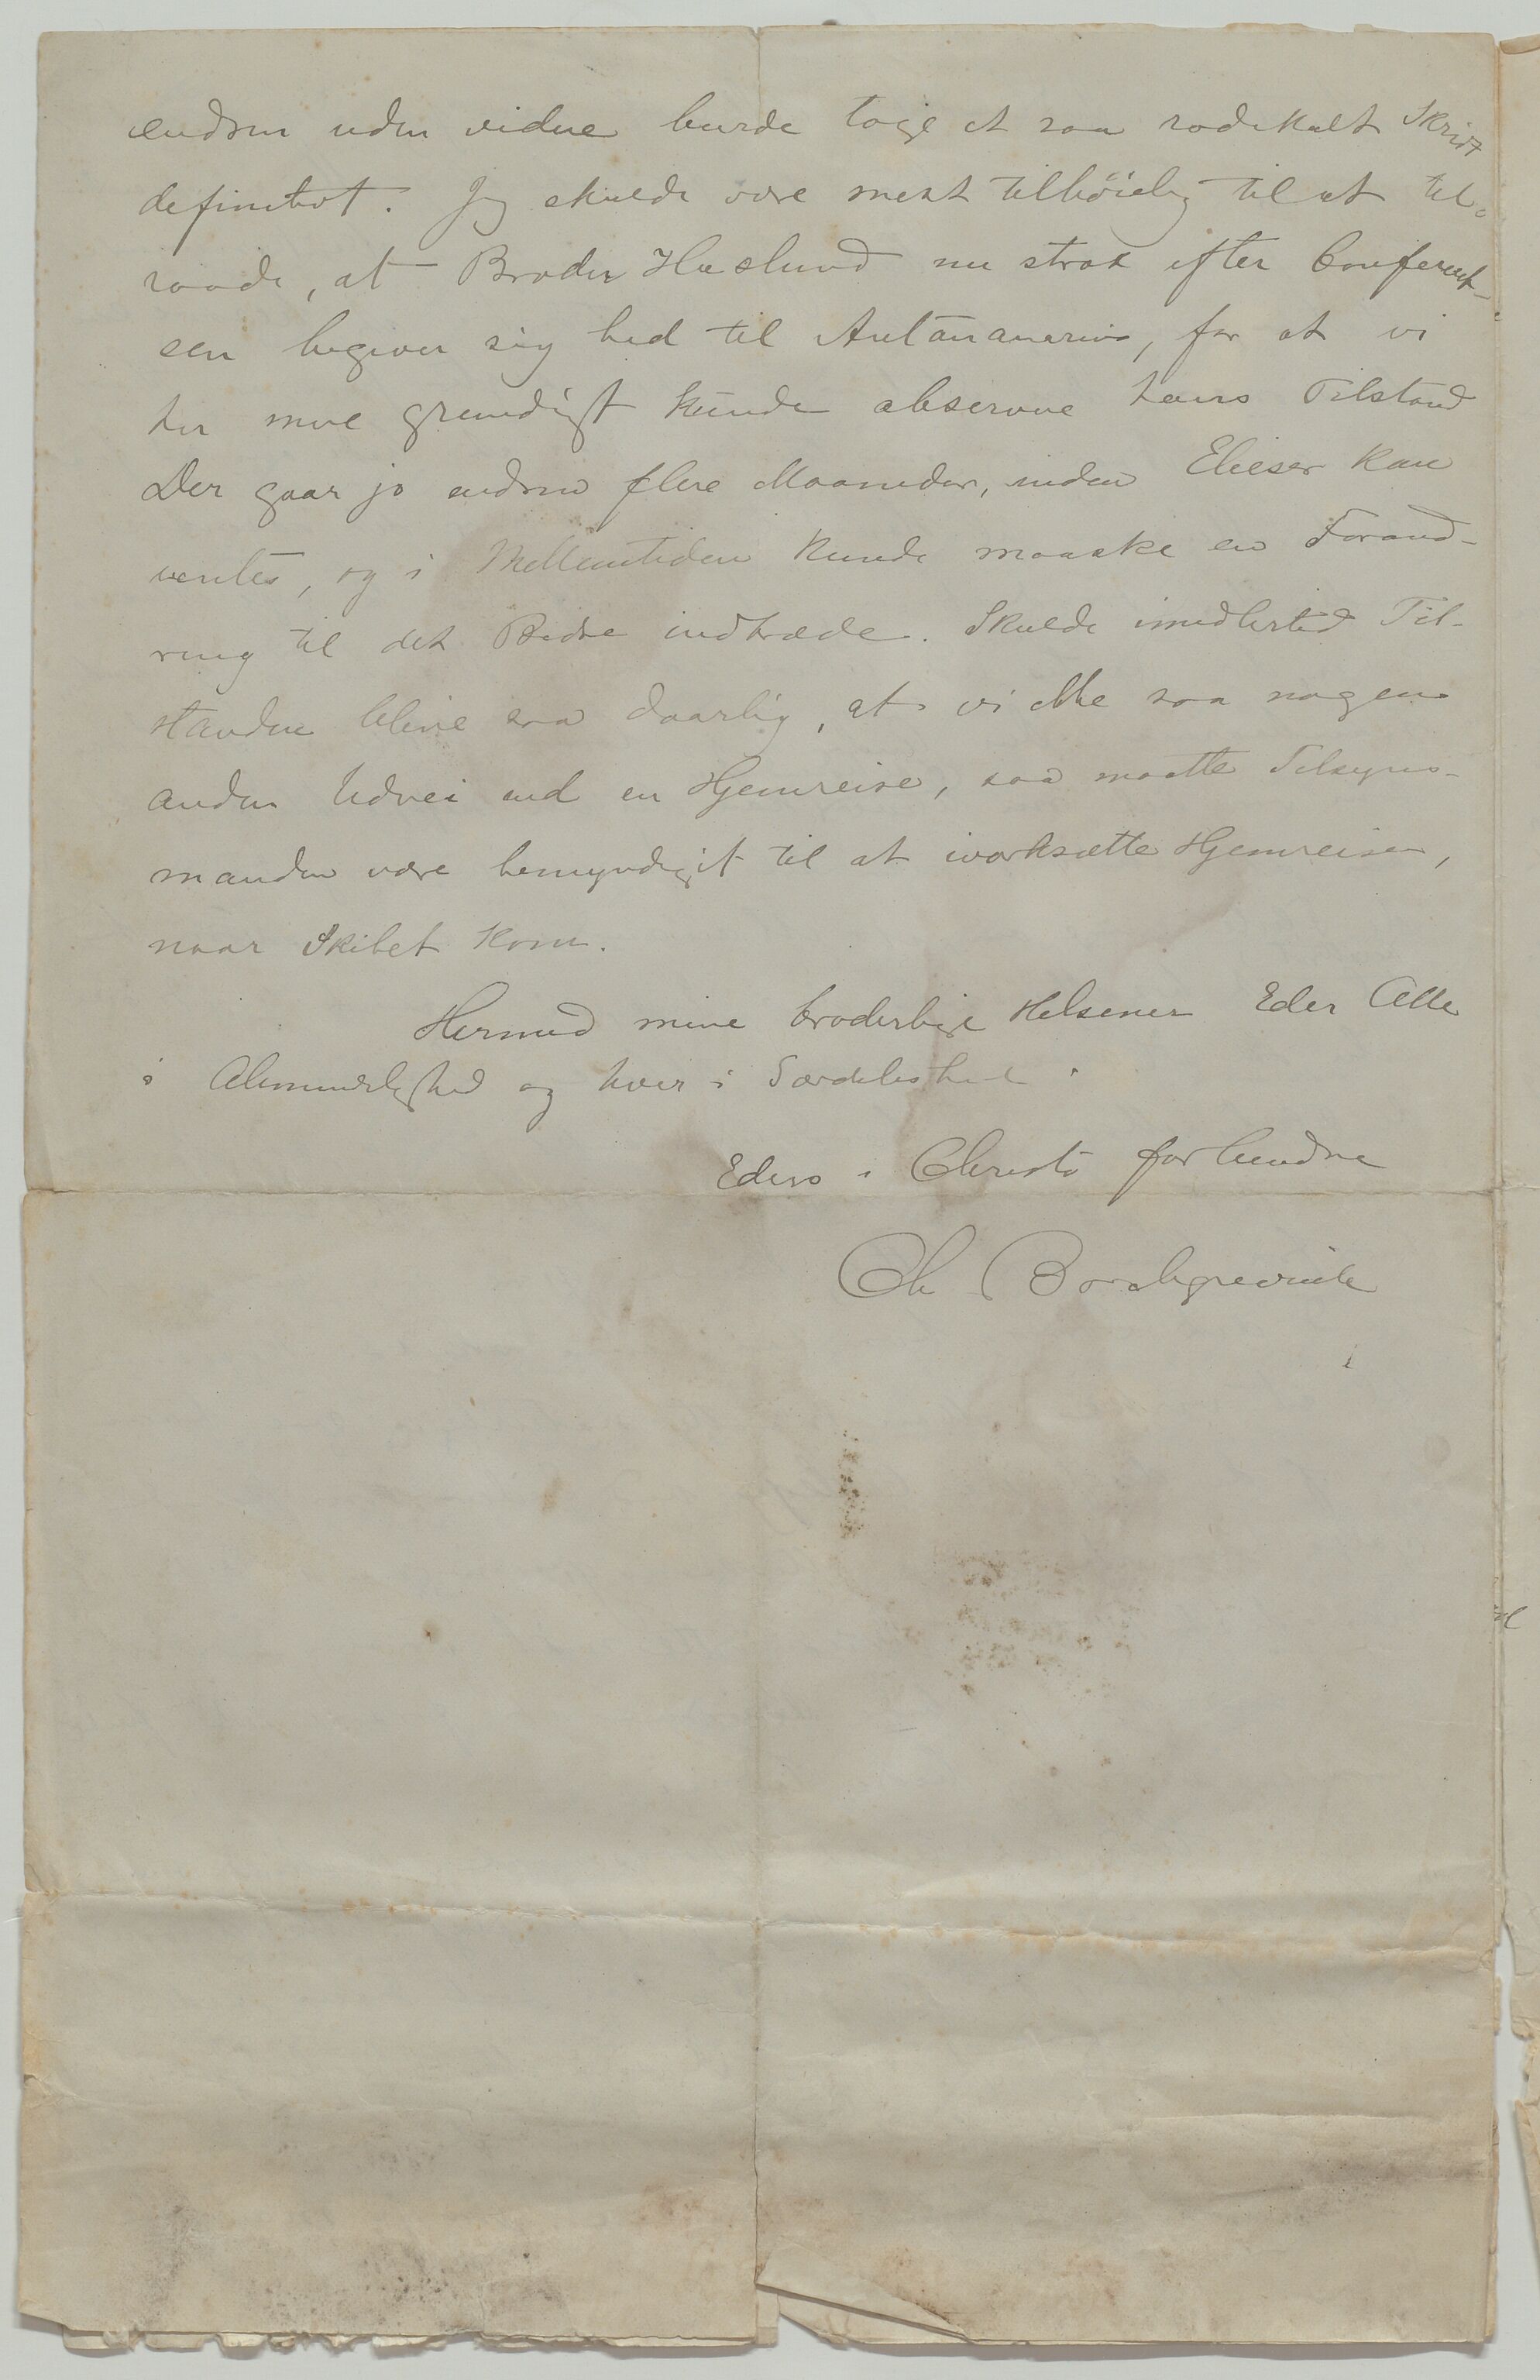 endnu uden videre burde tage et saa radikalt Skridt
definitivt. Jeg skulde være mest tilböielig til at til-
raade, at Broder Haslund nu strax efter Conferent-
sen begiver sig hid til Antananarivo, for at vi
her mere grundigt kunde observere hans Tilstand
Der gaar jo endnu flere Maaneder, inden Elieser kan
ventes, og i Mellemtiden kunde maaske en Forand-
ring til det Bedre indtræde. Skulde imidlertid Til-
standen blive saa daarlig, at vi ikke saa nogen
anden Udvei end en Hjemreise, saa maatte Tilsyns-
manden være bemyndiget til at iværksætte Hjemreisen,
naar Skibet kom.
Hermed mine broderlige Helsener Eder Alle
i Almindelighed og hver i Særdeleshed.
Eders i Christo forbundne
Ch Borchgrevink